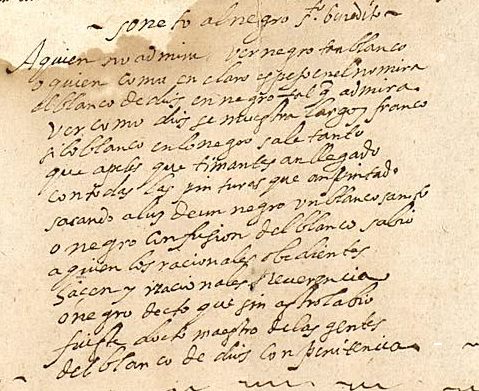 soneto al negro fr. benedito
A quien no admira ver negro tan blanco
o quien como en claro espejo en el no mira
el blanco de dios en negro tal q admira
ver como dios se muestra largo y franco
si lo blanco en lo negro sale tanto
que apeles que timantes an llegado
con todas las pinturas que an pintado
sacando a luz de un negro un blanco santo
o negro confusion del blanco sabio
a quien los racionales obedientes
hacen y racionales reverencia
o negro docto que sin astrolabio
fuiste docto maestro de las gentes
del blanco de dios con penitencia